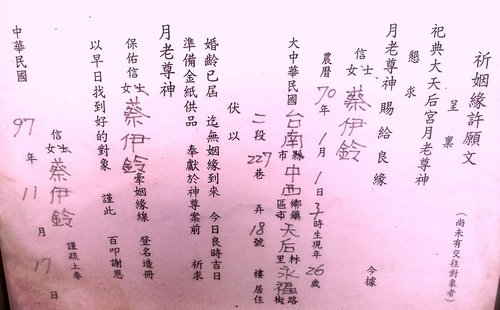 祈姻緣許願文
(尚未有交往對象者)
呈稟
祀典大天后宮月老尊神
懇求
月老尊神賜給良緣
今據
信士女 蔡伊鈴
農曆70年1月1日子時生現年26歲
大中華民國台南縣市中西鄉鎮區市天后村里永福路街
二段227巷 弄18號 樓居住
伏以
婚齡已屆 迄無姻緣到來 今日良時吉日
準備金紙供品 奉獻於神尊案前 祈求
月老尊神
保佑信士女蔡伊鈴牽姻緣線 登名造冊
以早日找到好的對象 謹此 百叩謝恩
信士女蔡伊鈴 謹疏上奉
中華民國 97年11月17日